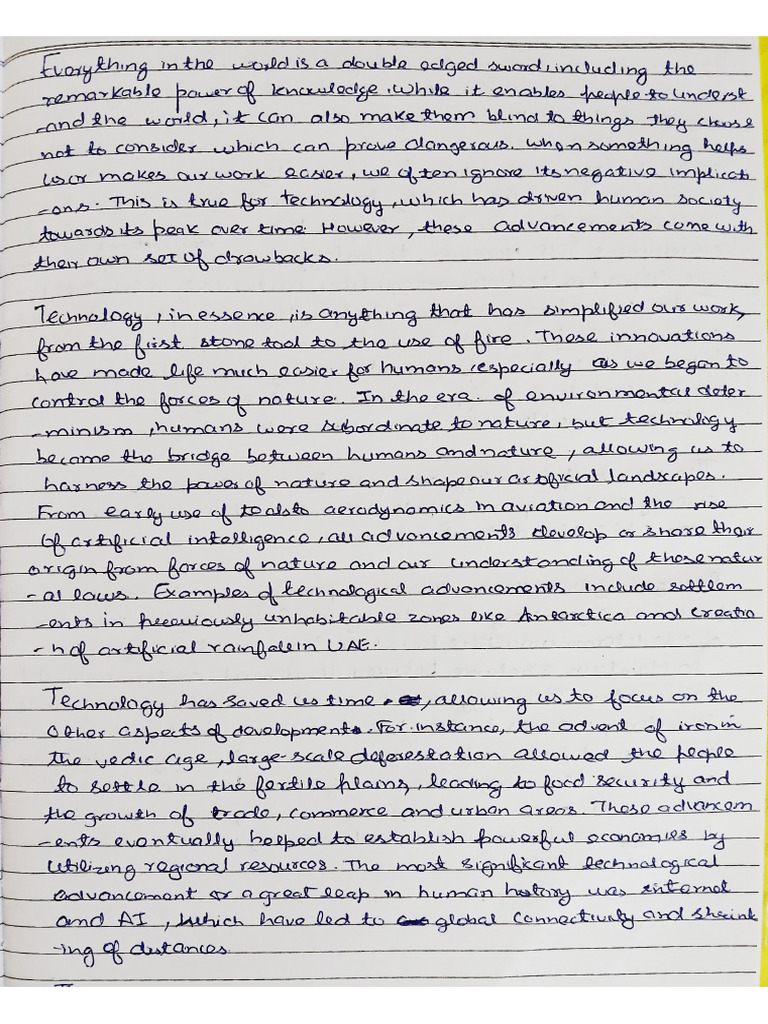 Everything in the world is a double edged sword, including the
remarkable power of knowledge. While it enables people to underst
-and the world, it can also make them blind to things they choose
not to consider which can prove dangerous. When something helps
us or makes our work easier, we often ignore its negative implicati
-ons. This is true for technology, which has driven human society
towards its peak over time. However, these advancements come with
their own set of drawbacks.
Technology, in essence, is anything that has simplified our work,
from the first stone tool to the use of fire. These innovations
have made life much easier for humans, especially as we began to
control the forces of nature. In the era of environmental deter
-minism, humans were subordinate to nature, but technology
became the bridge between humans and nature, allowing us to
harness the power of nature and shape our artificial landscapes.
From early use of tools to aerodynamics in aviation and the rise
of artificial intelligence, all advancements develop or share their
origin from forces of nature and our understanding of these natur
-al laws. Examples of technological advancements include settlem
-ents in previously unhabitable zones like Antarctica and creatio
-n of artificial rainfall in UAE.
Technology has saved us time, allowing us to focus on the
other aspects of development. For instance, the advent of iron in
the vedic age, large-scale deforestation allowed the people
to settle in the fertile plains, leading to food security and
the growth of trade, commerce and urban areas. These advancem
-ents eventually helped to establish powerful economies by
utilizing regional resources. The most significant technological
advancement or a great leap in human history was internet
and AI, which have led to global connectivity and shrink
-ing of distances.